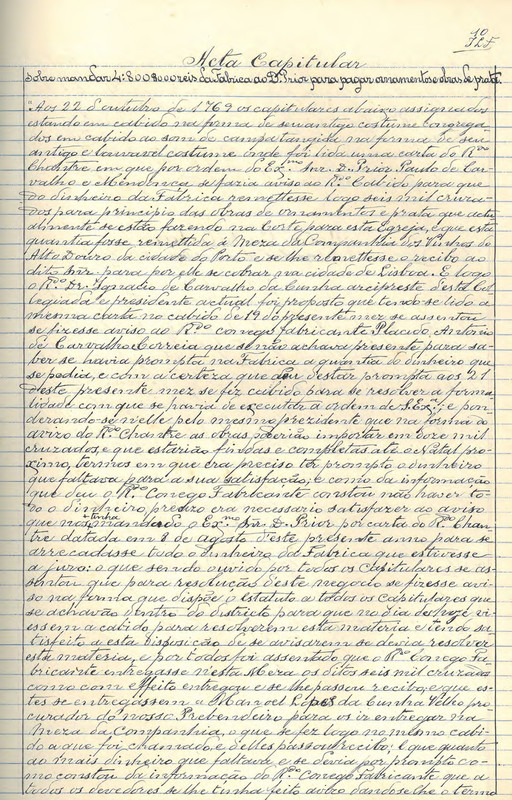 10
Acta Capitular
Sobre mandar 4:800$000 reis da Fabrica ao D. Prior para pagar ornamentos e obras de prata.
"Aos 22 d'outubro de 1769 os capitulares abaixo assignados
estando em cabido na forma de seu antigo costume congrega-
dos em cabido ao som de campa tangida na forma de seu
antigo e louvavel costume onde foi lida uma carta do Rdo
Chantre em que por ordem do Exmo Snr. D. Prior Paulo de Car-
valho e Mendonça se fazia aviso ao Rdo Cabido para que
do dinheiro da Fabrica remettesse logo seis mil cruza-
dos para principio das obras de ornamentos e prata que actu-
almente se estão fazendo na Corte para esta Egreja, e que esta
quantia fosse remettida á Meza da Companhia dos Vinhos do
Alto Douro da cidade do Porto e se lhe remettesse o recibo ao
dito Snr. para por elle se cobrar na cidade de Lisboa. E logo
o Rdo Dr. Ignacio de Carvalho da Cunha arcipreste d'esta Col-
legiada e presidente actual foi proposto que tendo-se lido a
mesma carta no cabido de 19 do presente mez se assentou
se fizesse aviso ao Rdo conego fabricante Placido Antonio
de Carvalho Correia que se não achava presente para sa-
ber se havia prompta na Fabrica a quantia do dinheiro que
se pedia, e com a certeza que deu d'estar prompta aos 21
d'este presente mez se fez cabido para se resolver a forma-
lidade com que se havia de executar a ordem de S. Exa; e pon-
derando-se n'elle pelo mesmo prezidente que na forma do
aviso do Rdo Chantre as obras poderião importar em doze mil
cruzados, e que estarião findas e completas até o Natal pro-
ximo, termos em que era preciso ter prompto o dinheiro
que faltava para a sua satisfação, e como da informação
que deu o Rdo Conego Fabricante constou não haver to-
do o dinheiro preciso era necessario satisfazer ao aviso
que nos tinha mandado o Exmo Snr. D. Prior por carta do Rdo Chan-
tre datada em 8 de agosto d'este presente anno para se
arrecadasse todo o dinheiro da Fabrica que estivesse
a juro: o que sendo ouvido por todos os capitulares se as-
sentou que para resolução d'este negocio se fizesse avi-
so na forma que dispõe o Estatuto a todos os Capitulares que
se achavão dentro do districto para que no dia de hoje vi-
essem a cabido para resolverem esta materia e tendo sa-
tisfeito a esta disposição de se avisarem se devia resolver
esta materia, e por todos foi assentado que o Rdo Conego Fa-
bricante entregasse n'esta Meza os ditos seis mil cruzados
como com effeito entregou e se lhe passou recibo, e que es-
tes se entregassem a Manoel Lopes da Cunha Velho pro-
curador do nosso Prebendeiro para os ir entregar na
Meza da Companhia, o que se fez logo no mesmo cabi-
do a que foi chamado, e d'elles passou recibo; e que quanto
ao mais dinheiro que faltava e se devia por prompto co-
mo constou da informação do Rdo Conego Fabricante que a
todos os devedores se lhe tinha feito aviso dando-se-lhe o termo